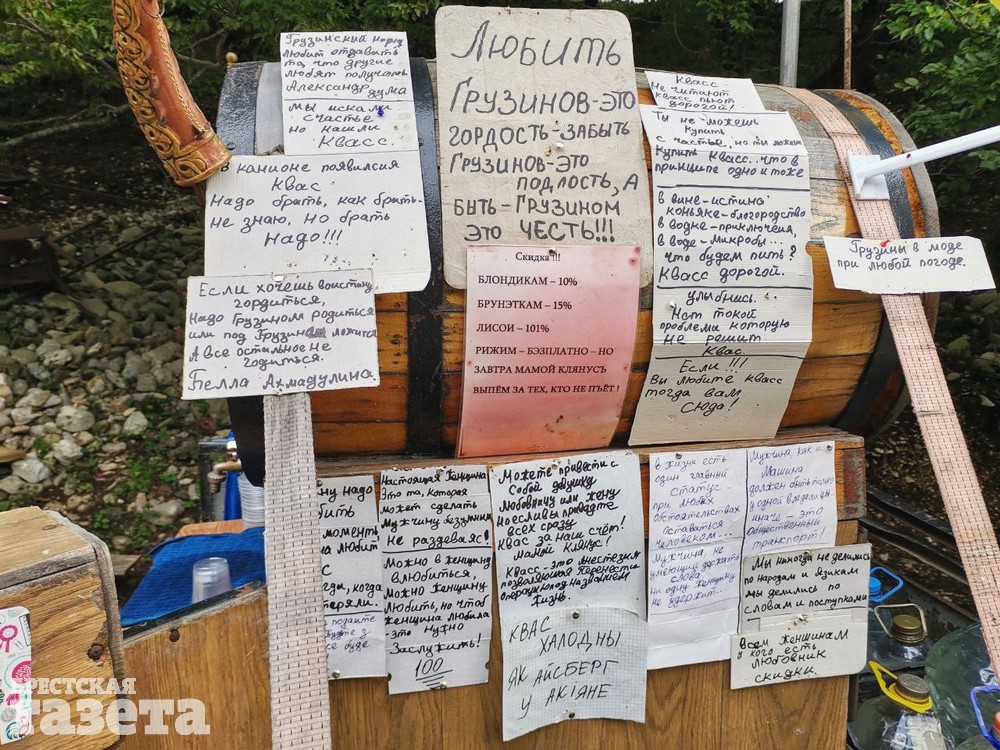 Грузинский народ
любит отдавать
то, что другие
любят получать
Александр дума
Мы искали
счастье
но нашли
Квасс.
В канионе появился
Квас
Надо брать, как брать-
не знаю, но брать
Надо!!!
Если хочешь воистину
гордиться,
Надо Грузином родиться
или под Грузином ложится
А все остальное не
годиться.
Белла Ахмадулина
Любить
Грузинов-это
гордость-забыть
Грузинов-это
подлость, а
быть-Грузином
это честь!!!
Скидка !!!
БЛОНДИКАМ – 10%
БРУНЭТКАМ – 15%
ЛИСОИ – 101%
РИЖИМ – БЭЗПЛАТНО – НО
ЗАВТРА МАМОЙ КЛЯНУСЬ
ВЫПЁМ ЗА ТЕХ, КТО НЕ ПЪЁТ !
Квасс
Не читают
квасс пьют
дорогой!
Ты не-можешь
купить
счастье, но ты можешь
купить Квасс..что в
принципе одно и тоже
в вине-истина
коньяке-благородство
в водке-приключения,
в воде-микробы...
что будем пить?
Квасс дорогой.
улыбнись..
Нет токой
проблема которую
не решит
Квасс.
Если!!!
Вы любите квасс
тогда вам
сюда!
Грузины в моде
при любой погоде.
ну надо
бить
моменты
на любит
с
гда, когда
теряли.
подайте
будте з
се буде
Настоящая Женщина
Это та, которая
может сделать
мужчину безумним
Не раздеваяс!
Можно в женщину
влюбиться,
Можно женщину
любить, но чтоб
женщина любила
это нужно
Заслужить!
100
Можете привести с
собой девушку
любовницу или жену
но если вы приведете
всех сразу
Квас за наш счёт!
мамой клянус!
Квасс-это анестезия
позволяющая перенести
операцию под названием
жизнь.
КВАС
ХАЛОДНЫ
ЯК АЙСБЕРГ
У АКІЯНЕ
в жизни есть
один главный
статус-
при любых
обстоятельствах
оставаться
человеком...
мужчина, не
умеющий держать
слова
ни одну женщину
не удержит..
Мужчина, как и
машина
должен быть только
у одной владелицы.
иначе-это
общественный
транспорт!
Мы никогда не делились
по народам и языкам
мы делились по
словам и поступками
Всем женщинам
у кого есть
любовник
скидки.
БРЕСТСКАЯ
газета